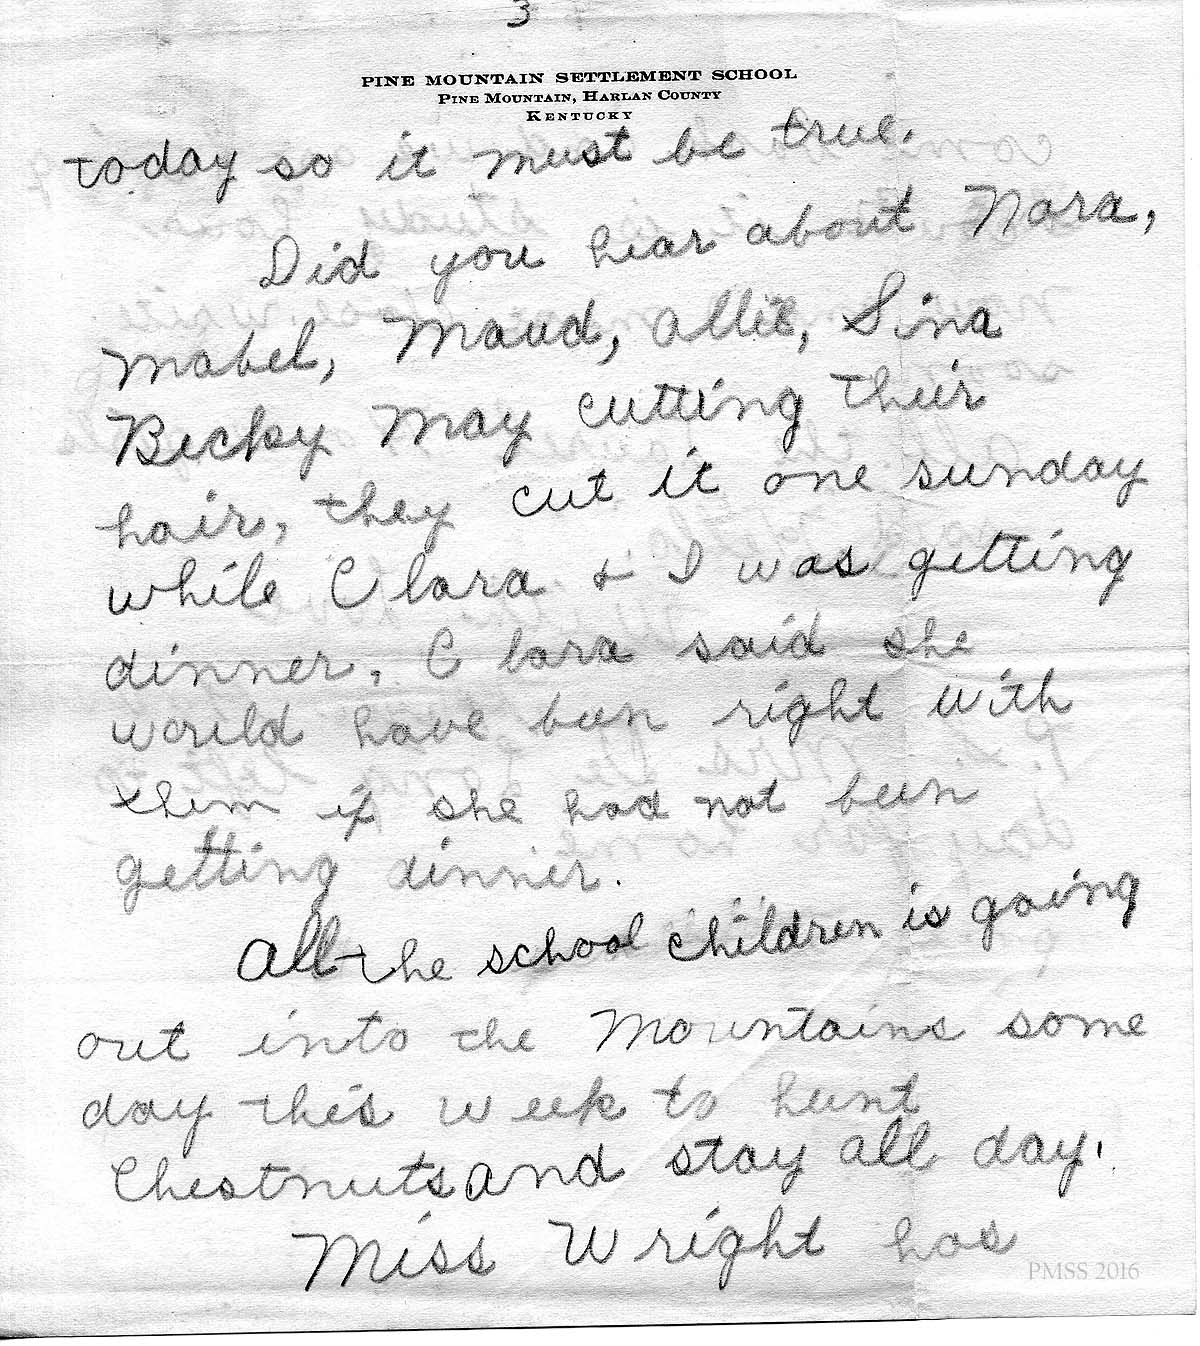 3
PINE MOUNTAIN SETTLEMENT SCHOOL
PINE MOUNTAIN, HARLAN COUNTY
KENTUCKY
today so it must be true.
Did you hear about Nora,
Mabel, Maud, Allie, Sina
Becky May cutting their
hair, they cut it one sunday
while Clara & I was getting
dinner, Clara said she
would have been right with
them if she had not been
getting dinner.
All the school children is going
out into the Mountains some
day this week to hunt
Chestnuts and stay all day.
Miss Wright has
PMSS 2016